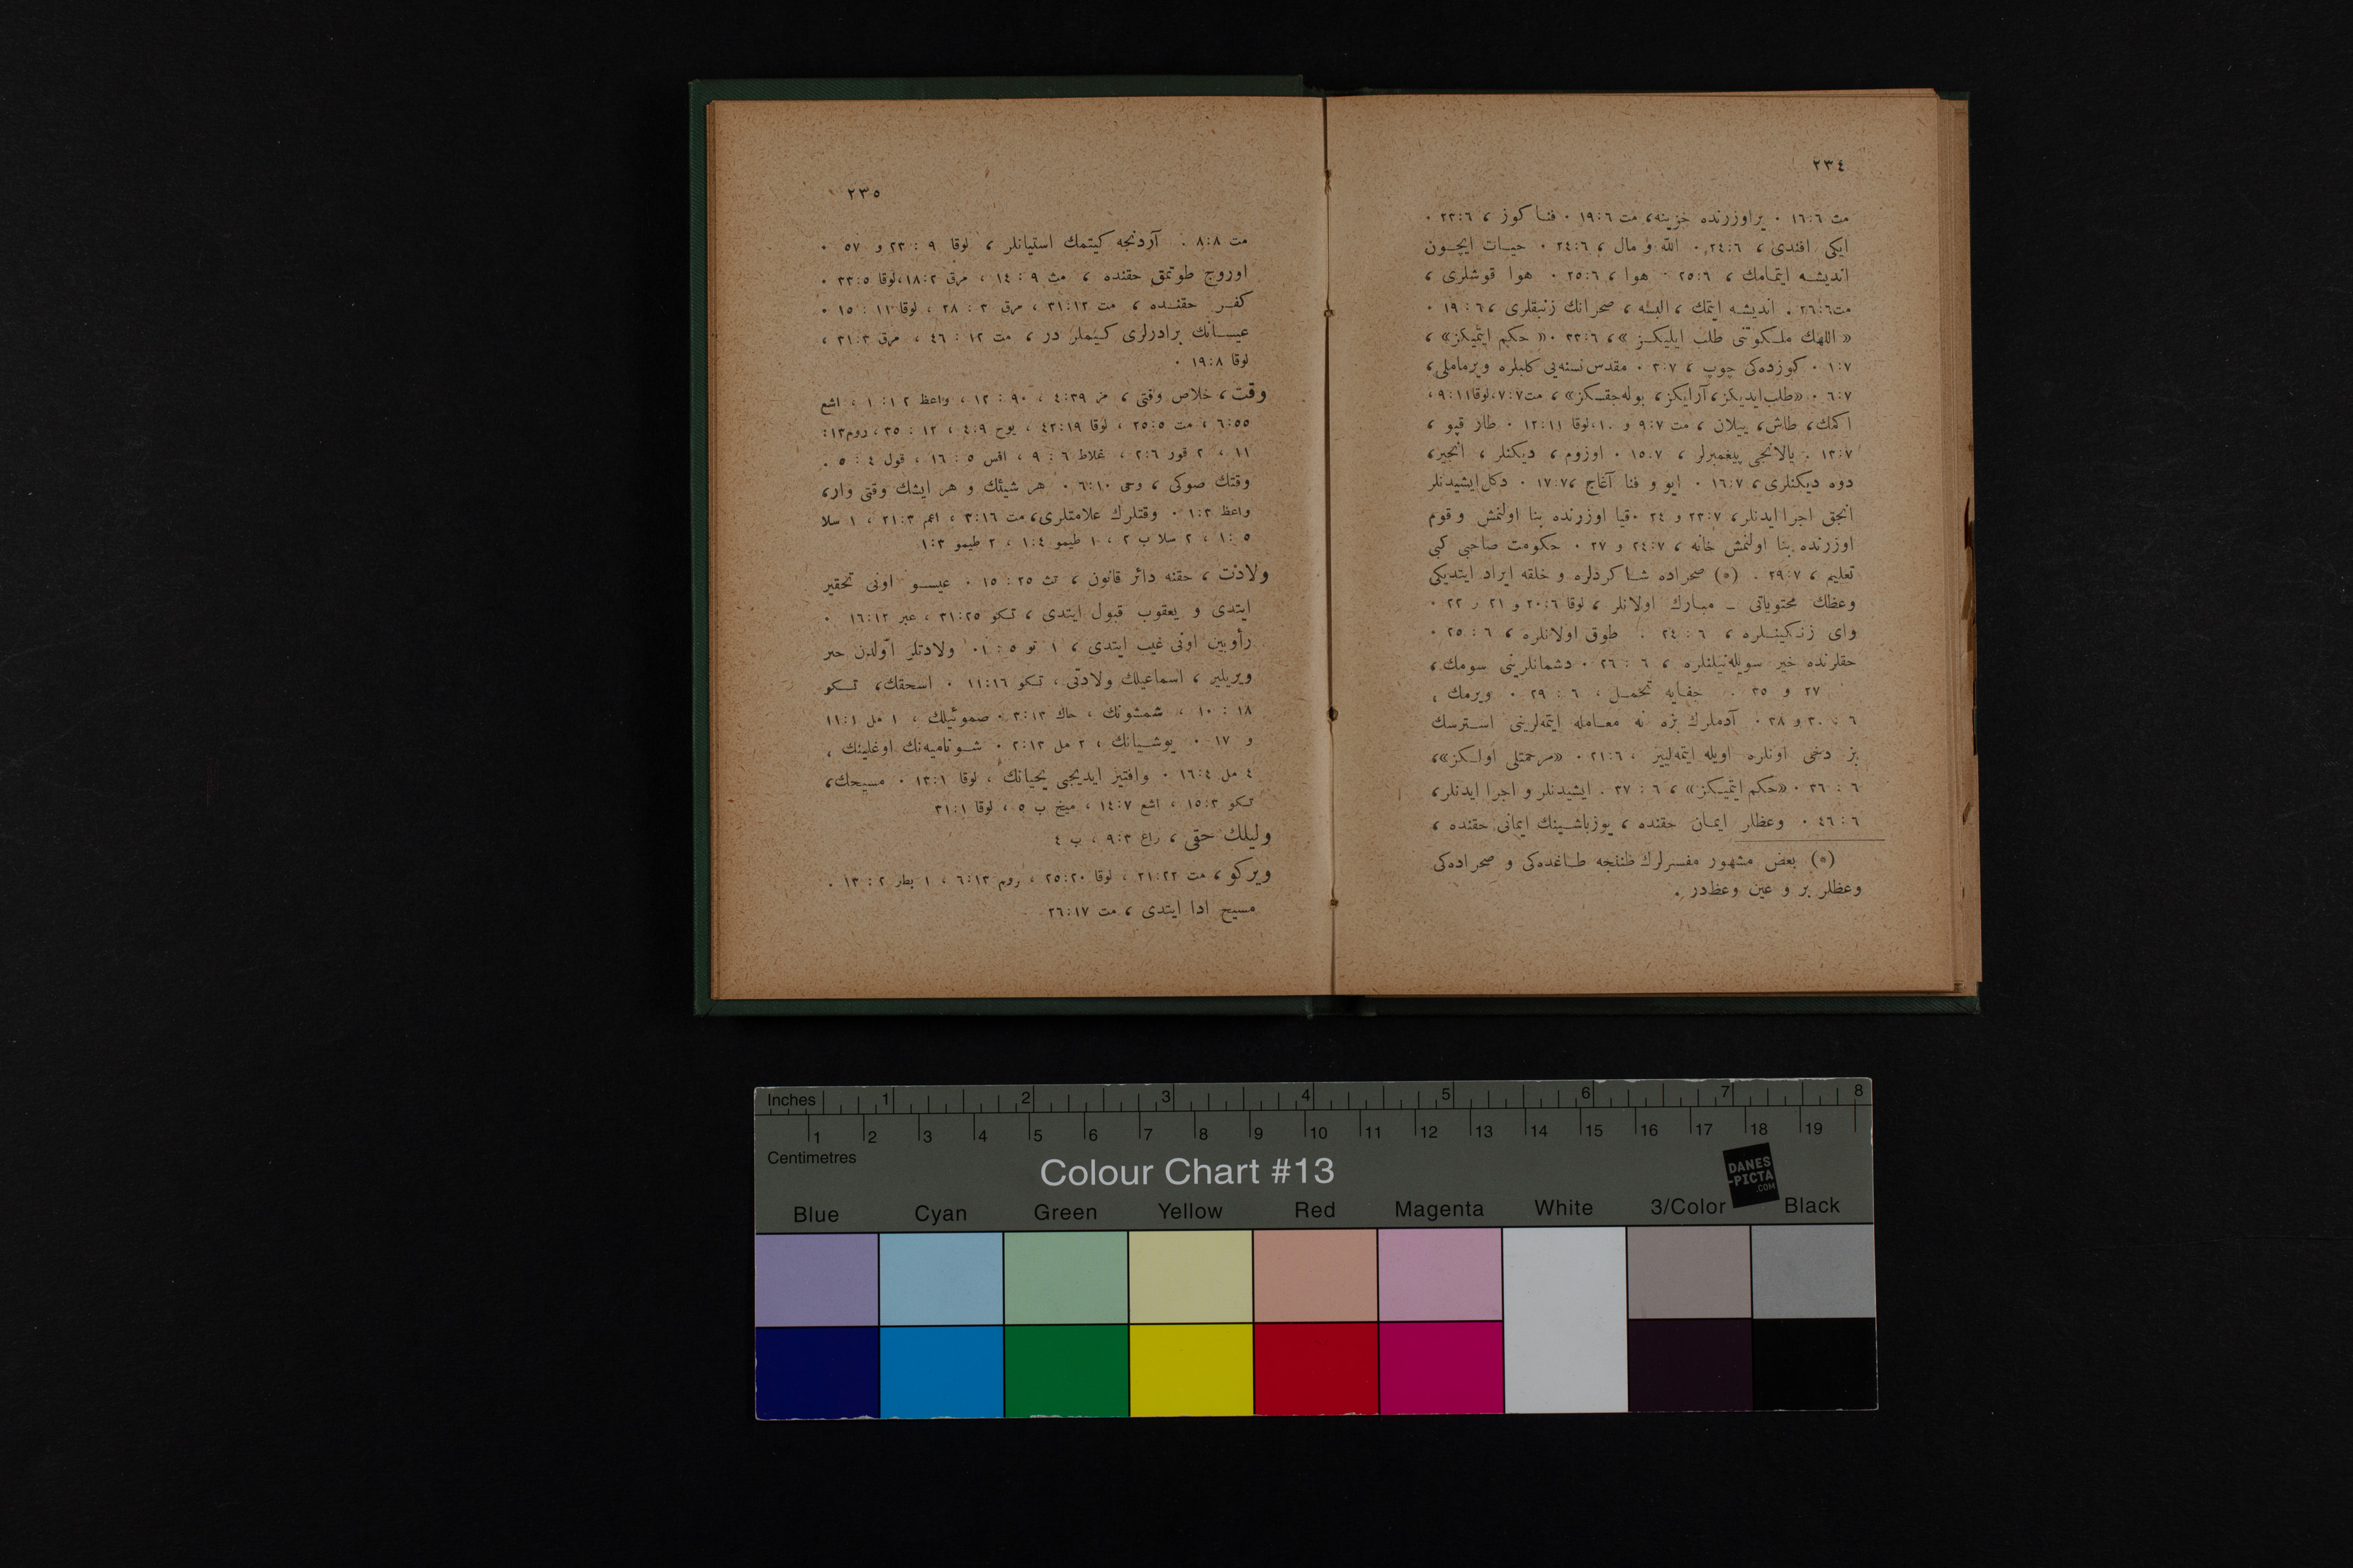 ٢٣٤
مت ٦:١٦ . يراوزرنده خزينه، مت ٦:١٩ . فنا كوز ، ٦:٢٣ .
ايكى افندى ، ٦:٢٤ . الله و مال ، ٦:٢٤ . حيات ايچون
انديشه ايتمامك ، ٦:٢٥ . هوا ، ٦:٢٥ . هوا قوشلرى ،
مت ٦:٢٦ . انديشه ايتمك ، البسه ، صحرانك زنبقلرى ، ٦ : ١٩ .
« اللهك ملكوتنى طلب ايليكز » ، ٦:٣٣ . « حكم ايتميكز » ،
٧:١ . كوزده كى چوپ ، ٧:٣ . مقدس نسنه يى كلبلره ويرماملى ،
٧:٦ . «طلب ايديكز ، آرايكز ، بوله جقسكز» ، مت ٧:٧ ، لوقا ١١:٩ ،
اكمك ، طاش ، ييلان ، مت ٧:٩ و ١٠ ، لوقا ١١:١٢ . طار قپو ،
٧:١٣ . يالانجى پيغمبرلر ، ٧:١٥ . اوزوم ، ديكنلر ، انجير ،
دوه ديكنلرى ، ٧:١٦ . ايو و فنا آغاج ، ٧:١٧ . دكل ايشيدنلر
انجق اجرا ايدنلر ، ٧:٢٣ و ٢٤ . قيا اوزرنده بنا اولنمش و قوم
اوزرنده بنا اولنمش خانه ، ٧:٢٤ و ٢٧ . حكومت صاحبى كبى
تعليم ، ٧:٢٩ . (٥) صحراده شاكردلره و خلقه ايراد ايتديكى
وعظك محتوياتى ــ مبارك اولانلر ، لوقا ٦:٢٠ و ٢١ و ٢٢ .
واى زنكينلره ، ٦ : ٢٤ . طوق اولانلره ، ٦ : ٢٥ .
حقلرنده خير سويله نيلنلره ، ٦ : ٢٦ . دشمانلرينى سومك ،
٢٧ و ٣٥ . جفايه تحمل ، ٦ : ٢٩ . ويرمك ،
٦ : ٣٠ و ٣٨ . آدملرك بزه نه معامله ايتمه لرينى استرسك
بز دخى اونلره اويله ايتمه لييز ، ٦:٣١ . «مرحمتلى اولكز» ،
٦ : ٣٦ . «حكم ايتميكز» ، ٦ : ٣٧ . ايشيدنلر و اجرا ايدنلر ،
٦ : ٤٦ . وعظلر ايمان حقنده ، يوزباشينك ايمانى حقنده ،
(٥) بعض مشهور مفسرلرك ظننجه طاغده كى و صحراده كى
وعظلر بر و عين وعظدر .
٢٣٥
مت ٨:٨ . آردنجه كيتمك استيانلر ، لوقا ٩ : ٢٣ و ٥٧ .
اوروج طوتمق حقنده ، مت ٩ : ١٤ ، مرق ٢:١٨ ، لوقا ٥:٣٣ .
كفر حقنده ، مت ١٢:٣١ ، مرق ٣ : ٢٨ ، لوقا ١١ : ١٥ .
عيسانك برادرلرى كيملر در ، مت ١٢ : ٤٦ ، مرق ٣:٣١ ،
لوقا ٨:١٩ .
وقت ، خلاص وقتى ، مز ٣٩:٤ ، ٩٠ : ١٢ ، واعظ ١٢:١ ، اشع
٥٥:٦ ، مت ٥:٢٥ ، لوقا ١٩:٤٢ ، يوح ٩:٤ ، ١٢ : ٣٥ ، روم ١٣:
١١ ، ٢ قور ٦:٢ ، غلاط ٦ : ٩ ، افس ٥ : ١٦ ، قول ٤ : ٥ .
وقتك صوكى ، وحى ١٠:٦ . هر شيئك و هر ايشك وقتى وار ،
واعظ ٣:١ . وقتلرك علامتلرى ، مت ١٦:٣ ، اعم ٣:٢١ ، ١ سلا
٥ : ١ ، ٢ سلا ب ٢ ، ١ طيمو ٤:١ ، ٢ طيمو ٣:١
ولادت ، حقنه دائر قانون ، تث ٢٥ : ١٥ . عيسو اونى تحقير
ايتدى و يعقوب قبول ايتدى ، تكو ٢٥:٣١ ، عبر ١٢:١٦ .
رأوبين اونى غيب ايتدى ، ١ تو ٥ : ١ . ولادتلر اولدن خبر
ويريلير ، اسماعيلك ولادتى ، تكو ١٦:١١ . اسحقك ، تكو
١٨ : ١٠ ، شمشونك ، حاك ١٣:٣ . صموئيلك ، ١ مل ١:١١
و ١٧ . يوشيانك ، ٣ مل ١٣:٢ . شوناميه نك اوغلينك ،
٤ مل ٤:١٦ . وافتيز ايديجى يحيانك ، لوقا ١:١٣ . مسيحك ،
تكو ٣:١٥ ، اشع ٧:١٤ ، ميخ ب ٥ ، لوقا ١:٣١
وليلك حقى ، راع ٣:٩ ، ب ٤
ويركو ، مت ٢٢:٢١ ، لوقا ٢٠:٢٥ ، روم ١٣:٦ ، ١ بطر ٢ : ١٣ .
مسيح ادا ايتدى ، مت ١٧:٢٦
Inches 1 2 3 4 5 6 7 8
1 2 3 4 5 6 7 8 9 10 11 12 13 14 15 16 17 18 19
Centimetres
Colour Chart #13
DANES
-PICTA
.COM
Blue Cyan Green Yellow Red Magenta White 3/Color Black